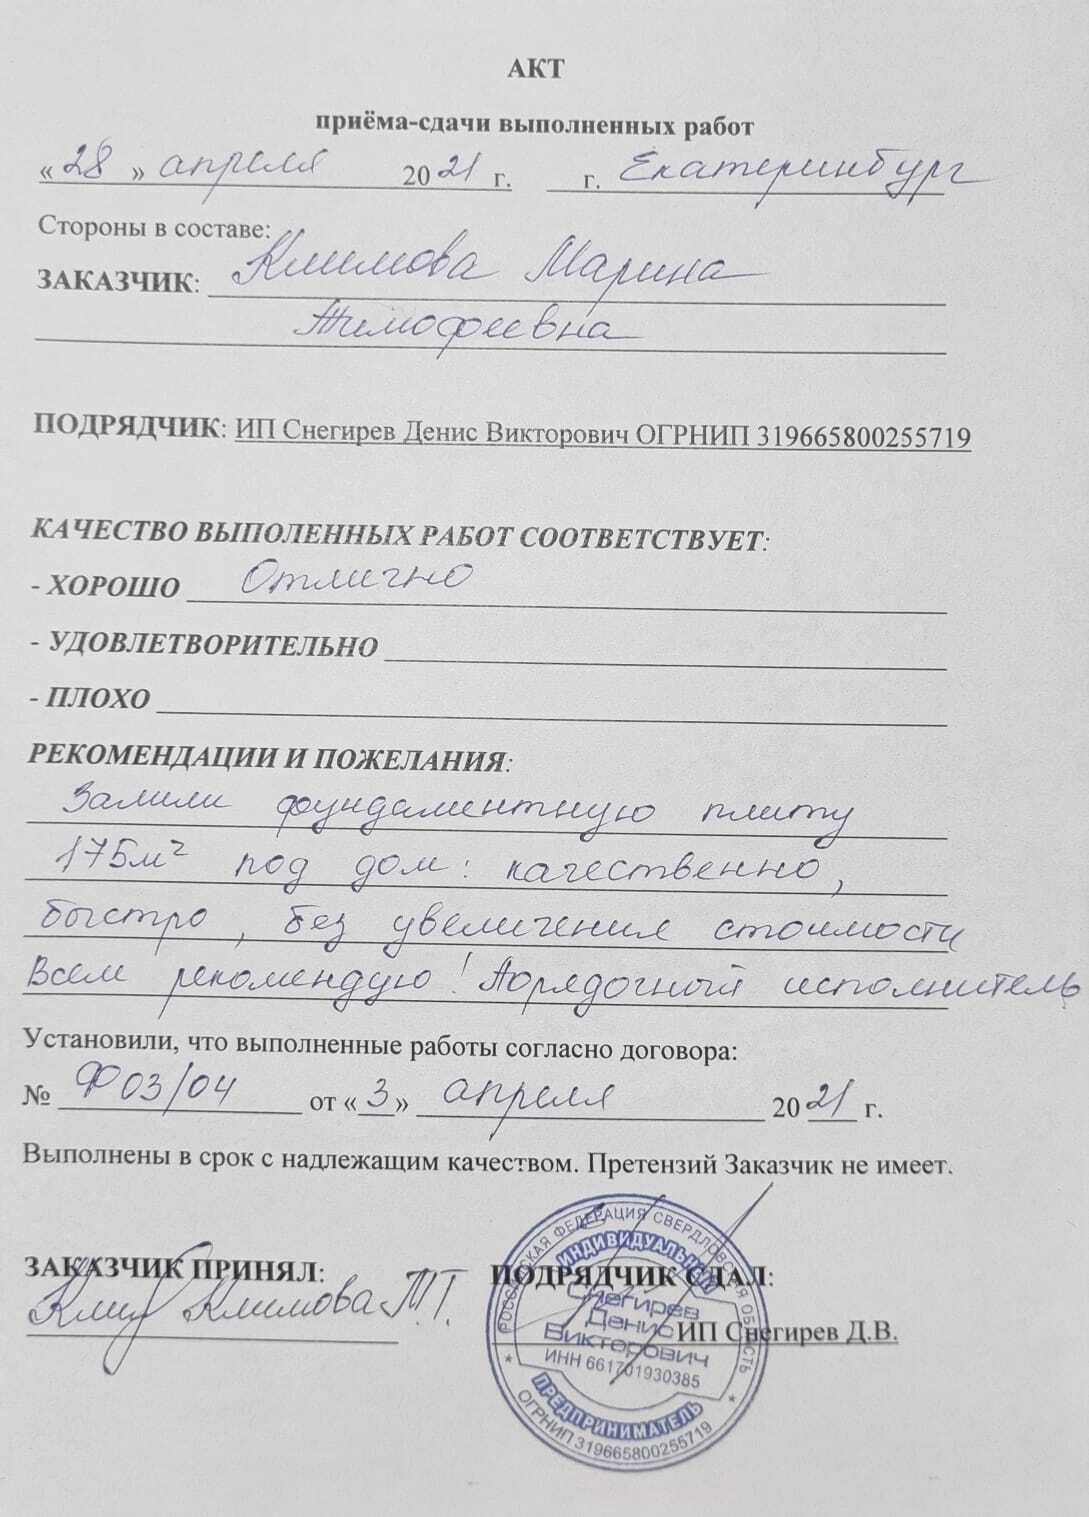 АКТ
приёма-сдачи выполненных работ
«28» апреля 2021 г. г. Екатеринбург
Стороны в составе:
ЗАКАЗЧИК: Климова Марина
Тимофеевна
ПОДРЯДЧИК: ИП Снегирев Денис Викторович ОГРНИП 319665800255719
КАЧЕСТВО ВЫПОЛЕННЫХ РАБОТ СООТВЕТСТВУЕТ:
- ХОРОШО Отлично
- УДОВЛЕТВОРИТЕЛЬНО
- ПЛОХО
РЕКОМЕНДАЦИИ И ПОЖЕЛАНИЯ:
Залили фундаментную плиту
175м² под дом: качественно,
быстро, без увеличения стоимости
Всем рекомендую! Порядочный исполнитель
Установили, что выполненные работы согласно договора:
№ Ф03/04 от «3» апреля 2021 г.
Выполнены в срок с надлежащим качеством. Претензий Заказчик не имеет.
ЗАКАЗЧИК ПРИНЯЛ: ПОДРЯДЧИК СДАЛ:
Климова М.Т. ИП Снегирев Д.В.
РОССИЙСКАЯ ФЕДЕРАЦИЯ СВЕРДЛОВСКАЯ ОБЛАСТЬ
ИНДИВИДУАЛЬНЫЙ
Снегирев
Денис
Викторович
ИНН 661701930385
ПРЕДПРИНИМАТЕЛЬ
* ОГРНИП 319665800255719 *